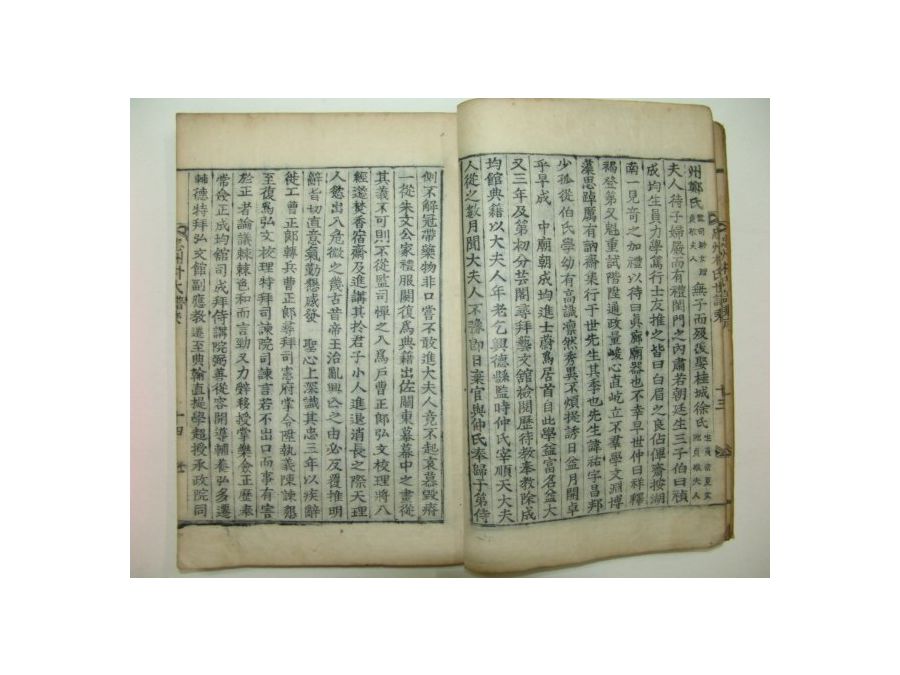 州鄭氏 無子而歿後娶桂城徐氏
夫人待子婦嚴而有禮閨門之內肅若朝廷生三子伯曰禎
成均生員力學篤行士友推之皆曰白眉之良佔俾齋按湖
南一見奇之加禮以待曰眞廊廟器也不幸早世仲曰祥釋
褐登第又魁重試階陞通政量峻心直屹立不羣學文淵博
藻思踔厲有訥齋集行于世先生其季也先生諱祐字昌邦
少孤從伯氏學幼有高識凜然秀異不煩提誘日益月開卓
乎早成 中廟朝成均進士蔚爲居首自此學益富名益大
又三年及第初分芸閣尋拜藝文館檢閱歷待敎奉敎除成
均館典籍以大夫人年老乞興德縣監時仲氏宰順天大夫
人從之數月聞大夫人不豫卽日棄官與仲氏奉歸子第侍
十三
側不解冠帶藥物非口嘗不敢進大夫人竟不起哀慕毁瘠
一從朱文公家禮服闋復爲典籍出佐關東幕幕中之畫從
其義不可則不從監司憚之入爲戶曹正郞弘文校理將入
經筵焚香宿齋及進講其於君子小人進退消長之際天理
人慾出入危微之幾古昔帝王治亂興亡之由必反覆推明
辭旨切直意氣勤懇感發 聖心上深識其忠三年以疾辭
徙工曹正郞轉兵曹正郞尋拜司憲府掌令陞執義陳諫懇
至復爲弘文校理特拜司諫院司諫言若不出口而事有害
於正者論議棘棘色和而言勁又力辭移授掌樂僉正歷奉
常僉正成均館司成拜侍講院弼善從容開導輔養弘多遷
輔德特拜弘文館副應敎遷至典翰直提學超授承政院同
十四